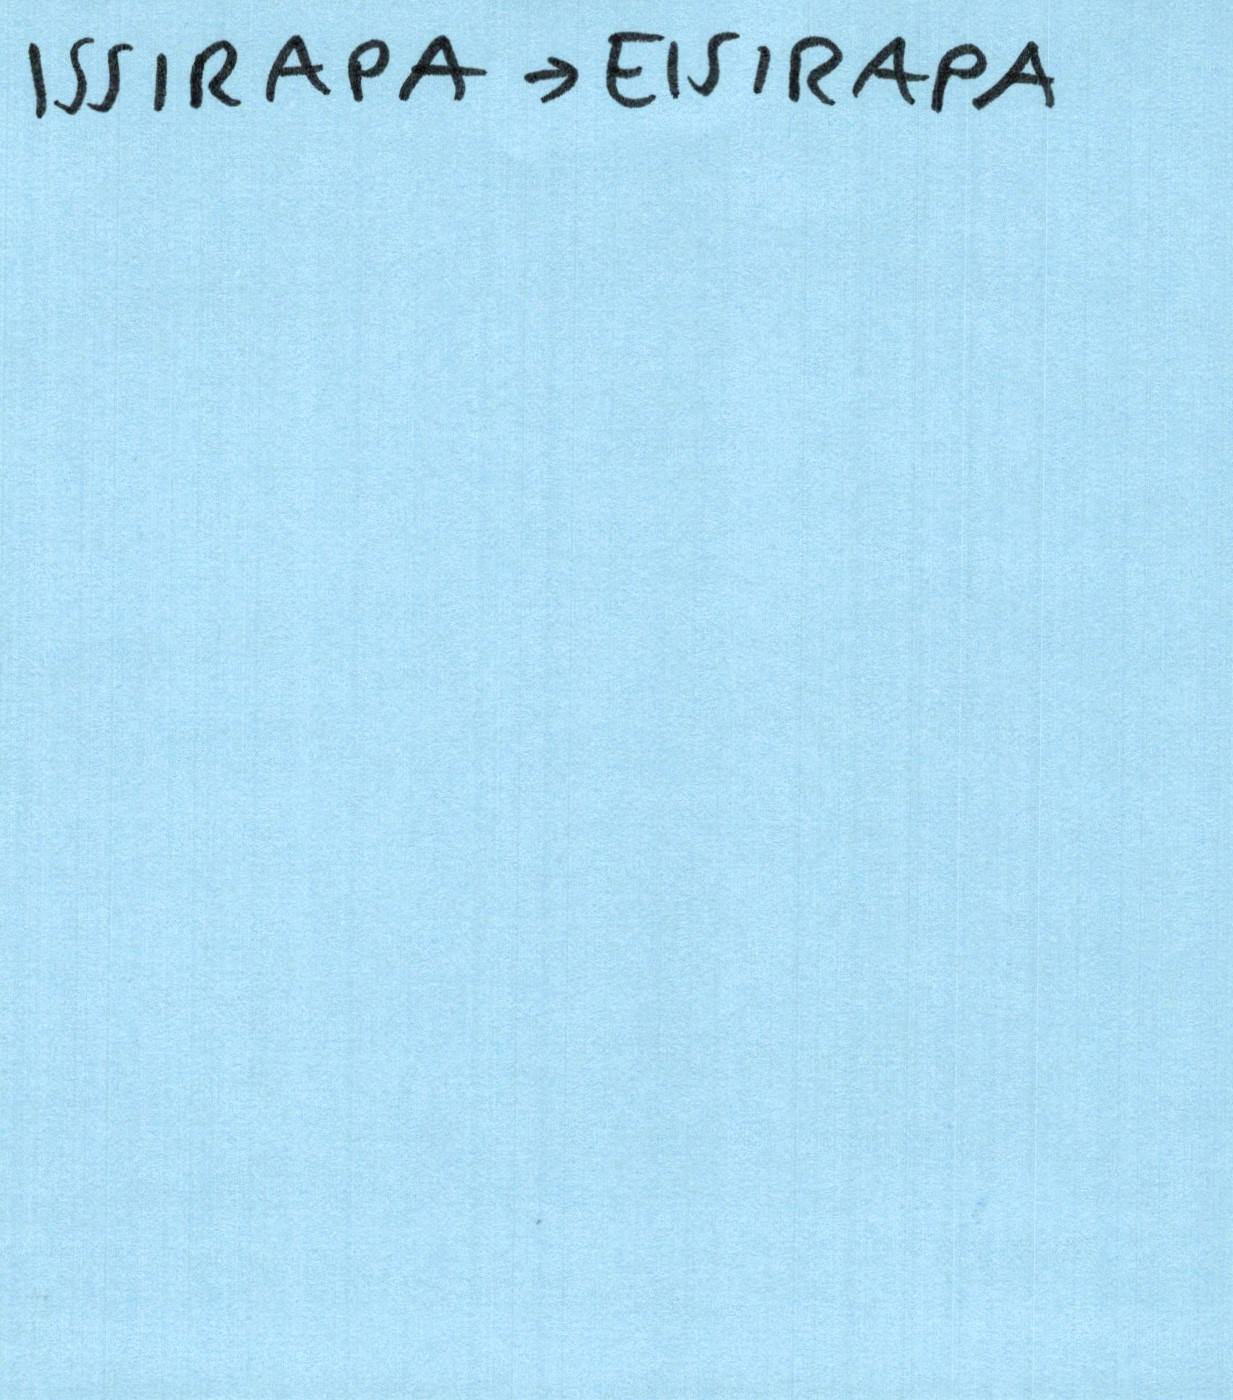 ISSIRAPA → EISIRAPA